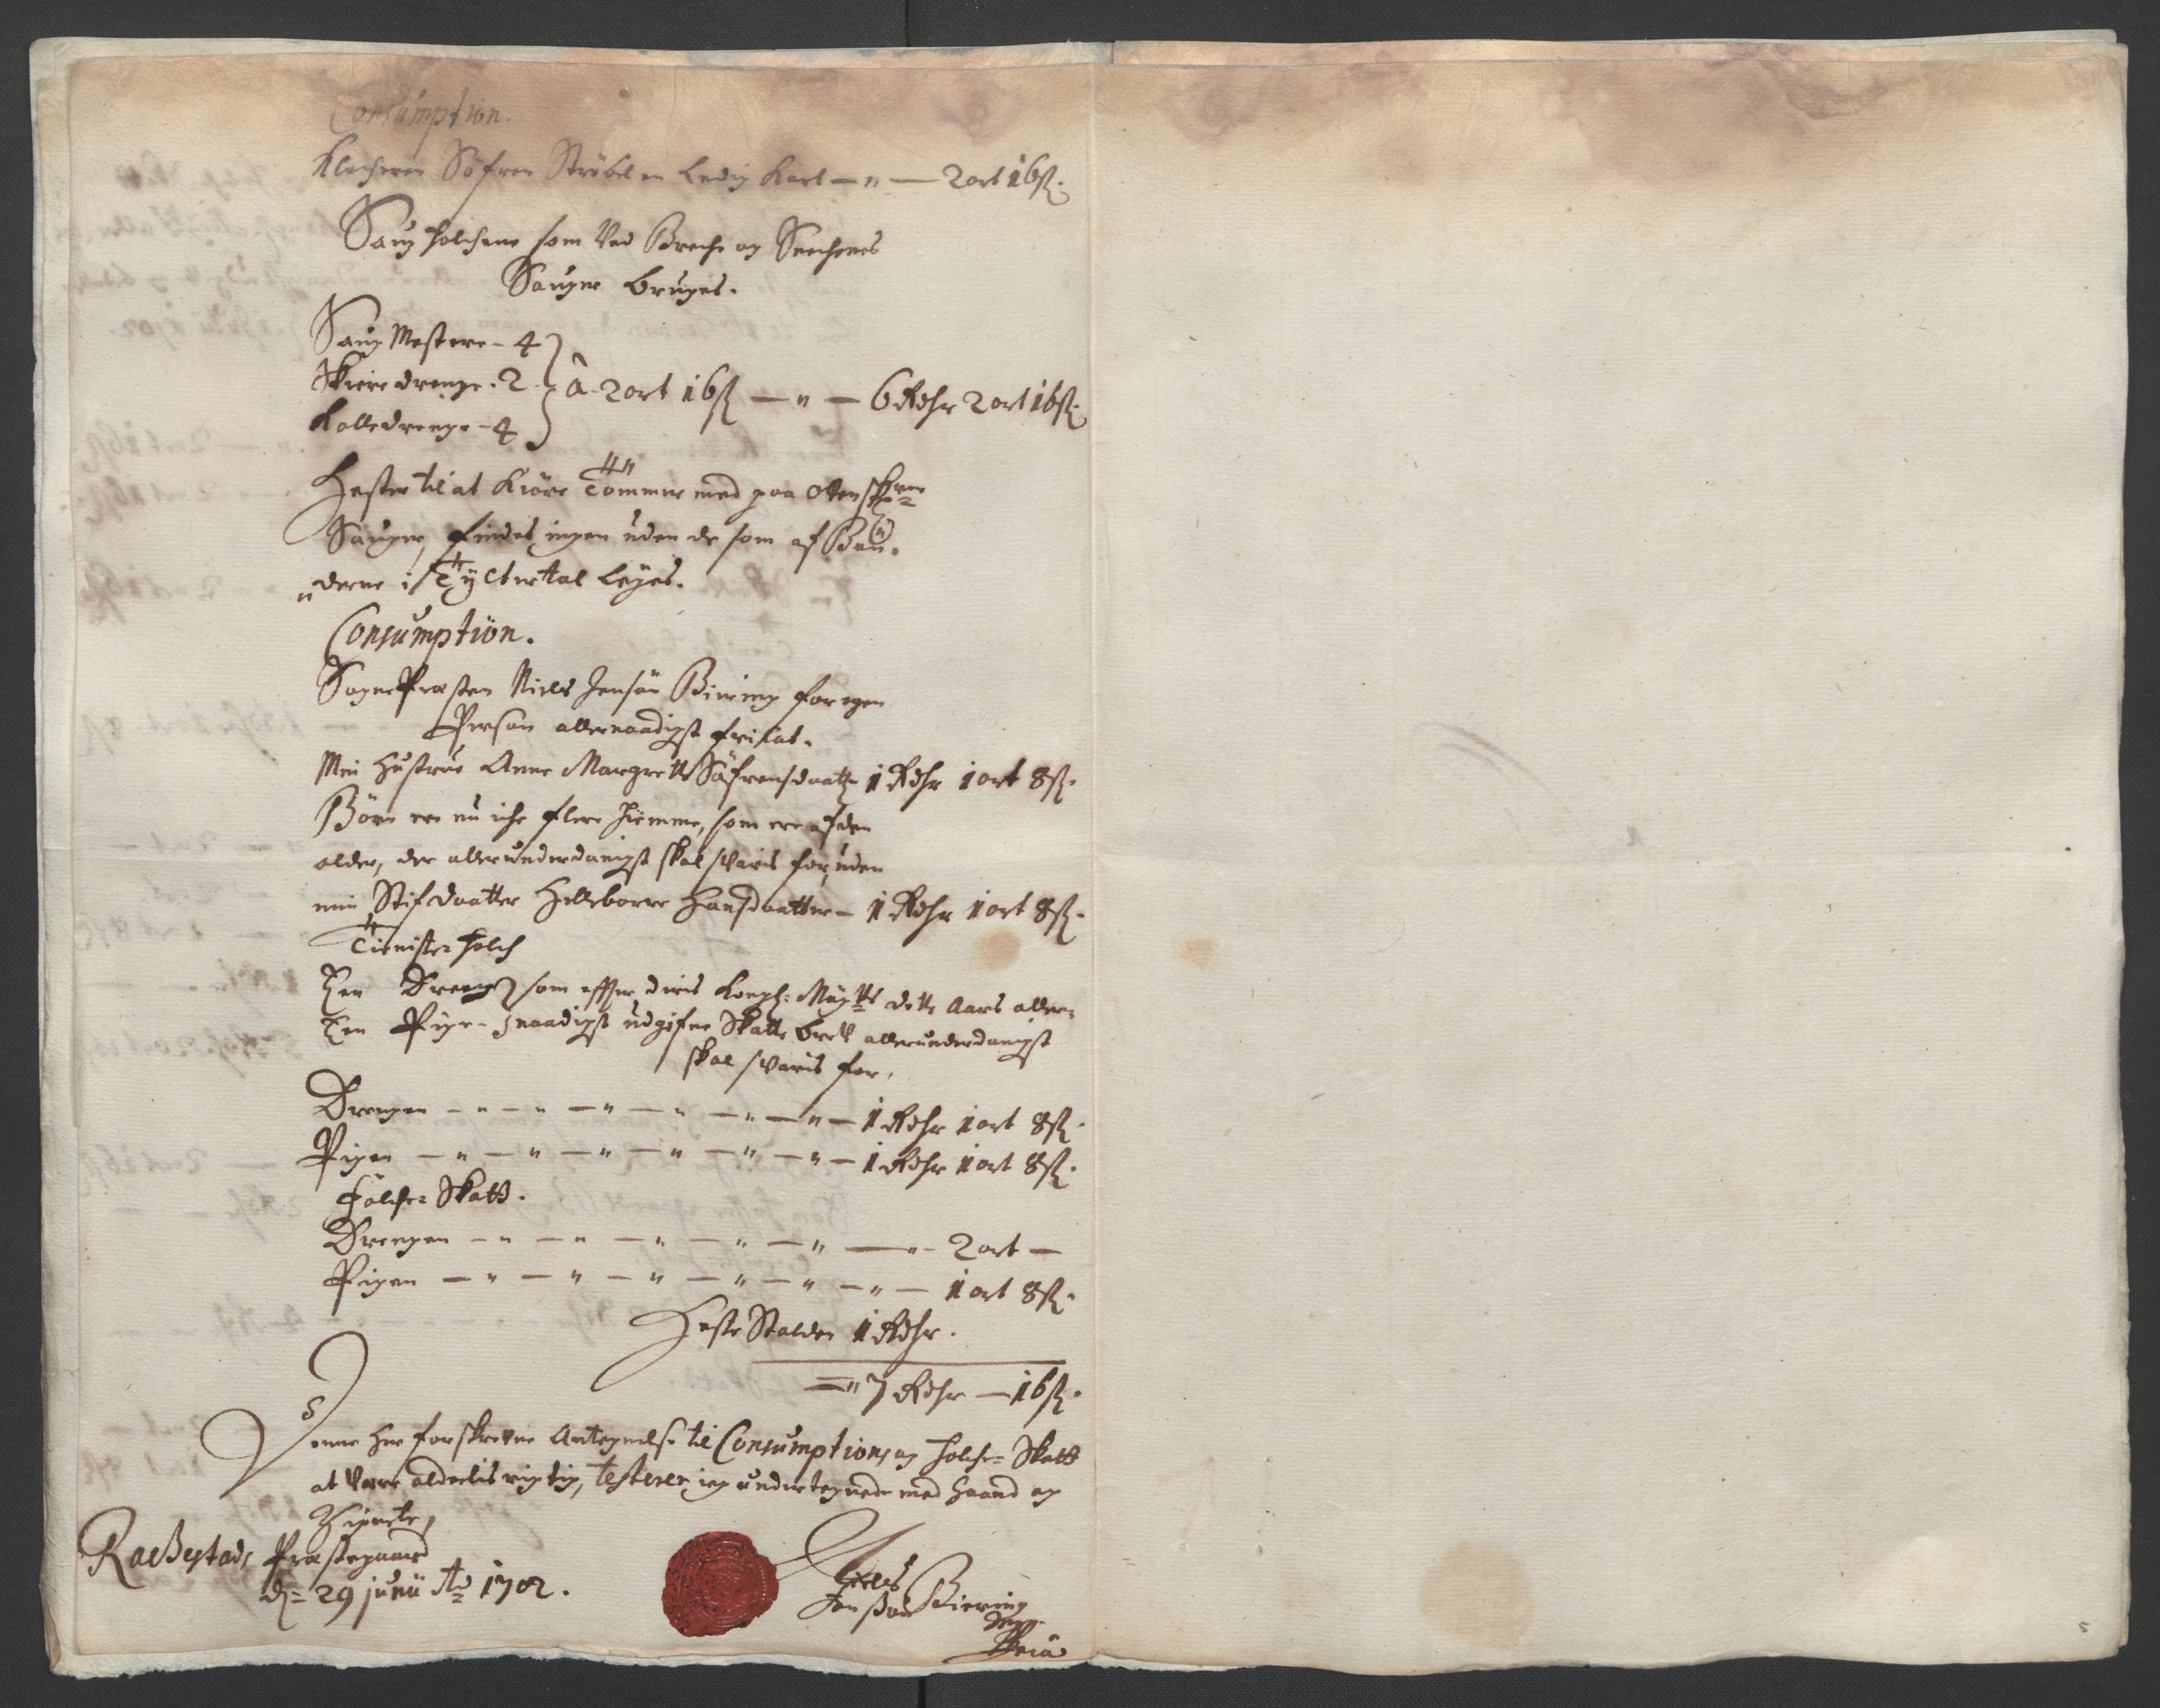 Consumption.
Klocheren Söfren Ströbel en Ledig Karl — " — 2 ort 16ß.
Saug folchene som Ved Breche og Seechenes
Sauger bruges.
Saug Mestere - 4
Skiere drenge - 2 à 2 ort 16ß — " — 6 Rdhr 2 ort 16ß.
Kolledrenge - 4
Hester til at Kiöre Tömmer med paa
Sauger, findes ingen uden de som af Bön-
derne i Tylter tal Leÿes.
Consumption.
SognePresten Niels Jensön Biering for egen
Person allernaadigst fri lat.
Min Hustrue Anne Margrette Söfrensdaatter 1 Rdhr 1 ort 8ß.
Börn ere nu iche flere hiemme, som ere af den
alder, der allerunderdanigst skal svaris for, uden
min Stifdaatter Hilleborre Hansdaatter - 1 Rdhr 1 ort 8ß.
Tieniste folch
Een Dreng som effter deris Kongl: Mayts dette Aars aller-
Een Pige - naadigst udgifne Skatte bref allerunderdanigst
skal svaris for.
Drengen — " — " — " — " — " — " — 1 Rdhr 1 ort 8ß.
Pigen — " — " — " — " — " — " — 1 Rdhr 1 ort 8ß.
Folche Skatt.
Drengen — " — " — " — " — " — " - 2 ort —
Pigen — " — " — " — " — " — " — 1 ort 8ß.
Heste Skatten 1 Rdhr.
— " 7 Rdhr — 16ß.
Denne her forskrevne Antegnelse til Consumptions og folche- Skatt
at Vere aldeelis rigtig, testerer ieg undertegnede med Haand og
Zignete,
Rachestads Prestegaard
d: 29 junii Ao 1702.
Niels
Jensön Biering